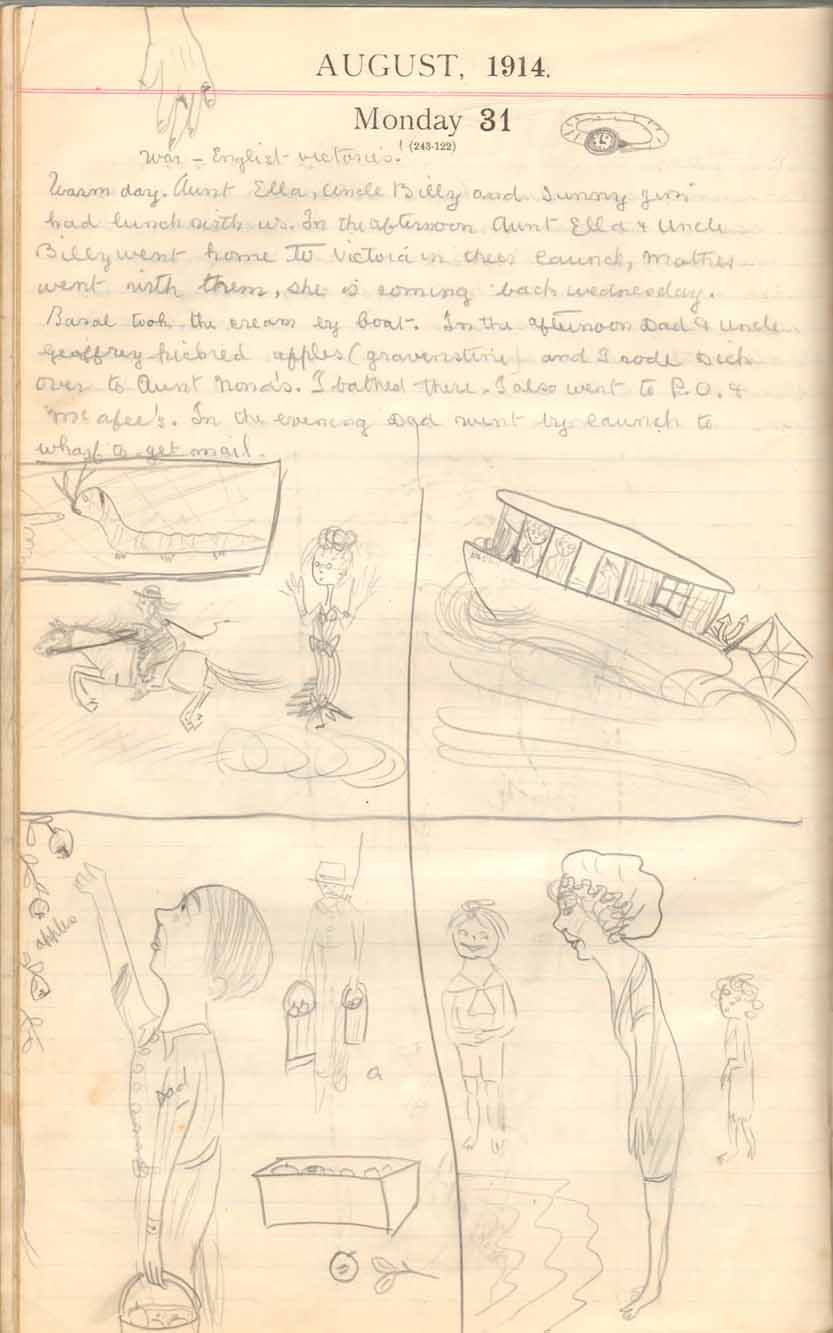 AUGUST, 1914.
Monday 31
(243-122)
War – English victories.
Warm day. Aunt Ella, Uncle Billy and Sunny Jim
had lunch with us. In the afternoon Aunt Ella & Uncle
Billy went home to Victoria in their launch, Mother
went with them, she is coming back wednesday.
Basal took the cream by boat. In the afternoon Dad & Uncle
Geoffrey picked apples (gravenstine) and I rode Dick
over to Aunt Nona's. I bathed there. I also went to P.O. &
Mc afee's. In the evening Dad went by launch to
wharf to get mail.
apples
Dad
a